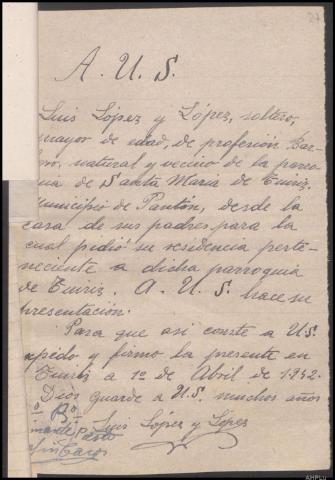 27
A. U. S.
Luis López y López, soltero,
mayor de edad, de profesión Bar-
bero, natural y vecino de la parro-
quia de Santa Maria de Tuiriz,
Municipio de Pantón, desde la
casa de sus padres, para la
cual pidió su residencia perte-
neciente a dicha parroquia
de Tuiriz. A. U. S. hace su
presentación.
Para que asi conste a U.S.
expido y firmo la presente en
Tuiriz a 1º de Abril de 1942.
Dios guarde a U.S. muchos años
Vº Bº
Luis López y López
AHPLU